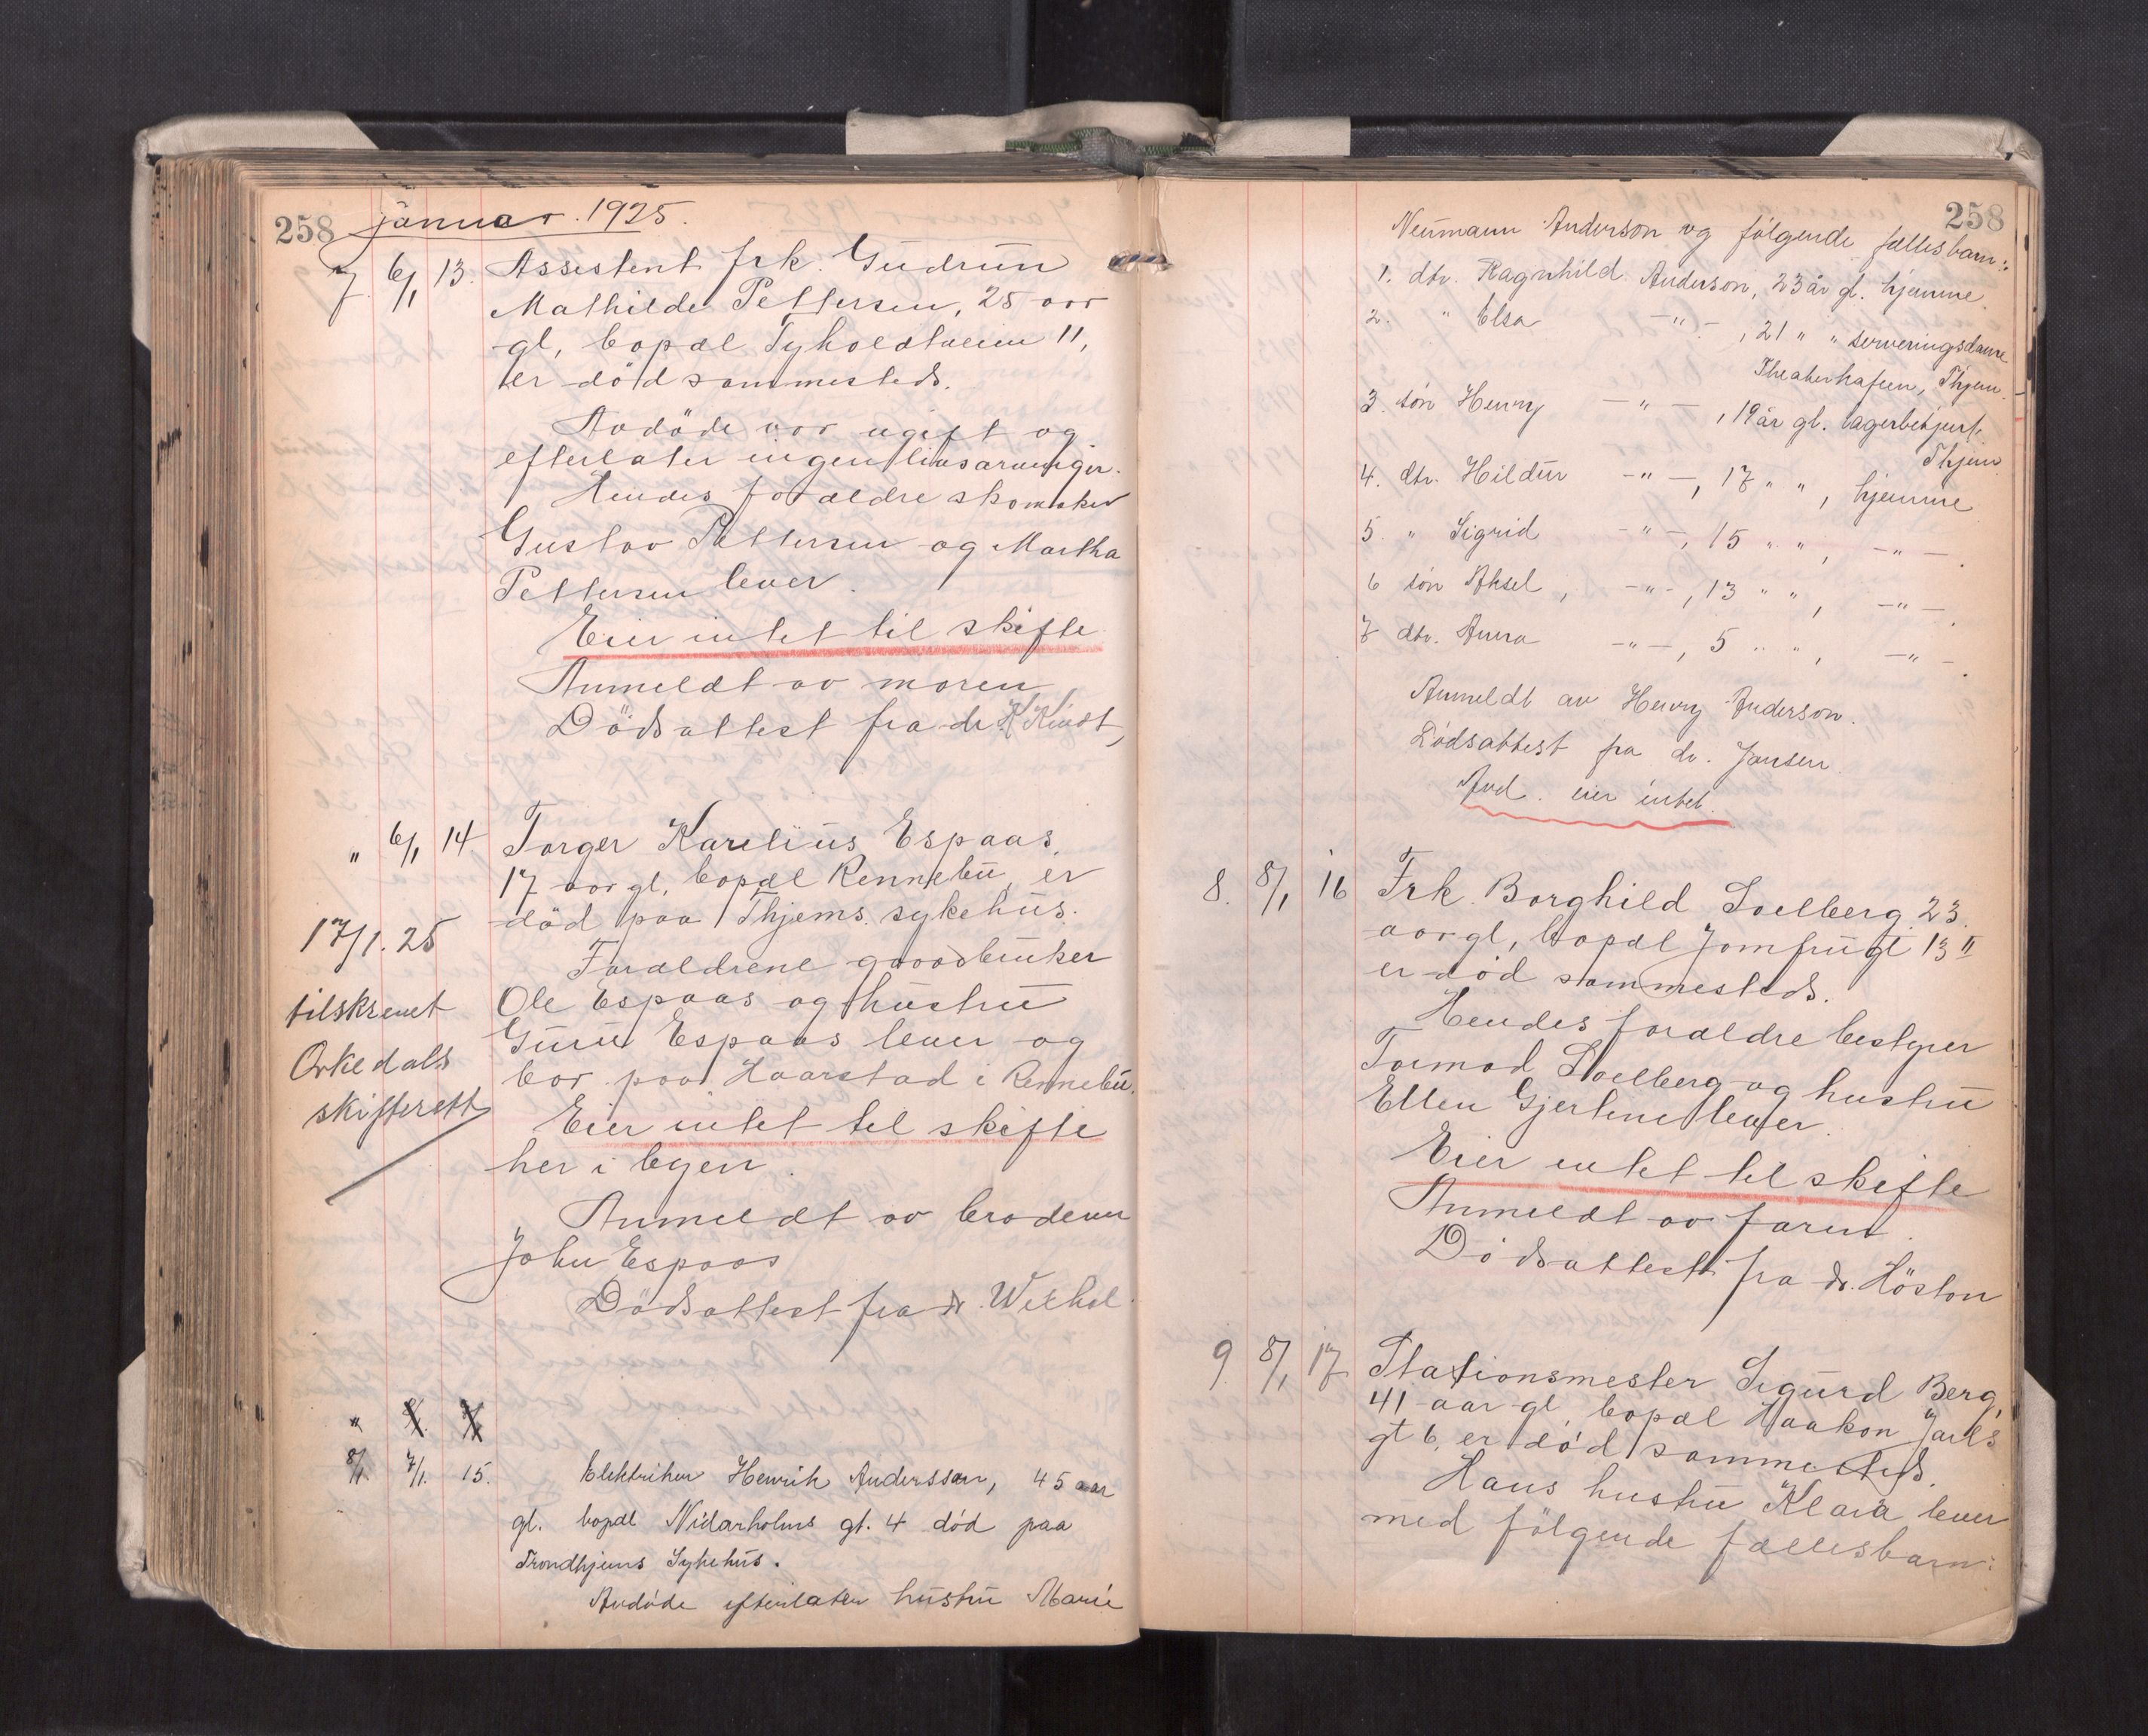 258 januar 1925.
7. 6/1 13. Assistent frk. Gudrun
Mathilde Pettersen, 25 aar
gl, bopæl Tyholdtveien 11,
er död sammesteds.
Avdöde var ugift og
efterlater ingen livsarvinger.
Hendes forældre skomaker
Gustav Pettersen og Martha
Pettersen lever.
Eier intet til skifte
Anmeldt av moren
Dödsattest fra dr. K Kindt,
" 6/1 14 Torger Karelius Espaas,
17 aar gl, bopæl Rennebu, er
död paa Thjems. sykehus.
Forældrene gaardbruker
Ole Espaas og hustru
Guru Espaas lever og
bor paa Haarstad i Rennebu.
Eier intet til skifte
her i byen.
Anmeldt av broderen
John Espaas
Dödsattest fra dr.
17/1. 25
tilskrevet
Orkedals
skifterett
8/1 7/1. 15. Elektriker Henrik Anderssen, 45 aar
gl. bopæl Nidarholms gt. 4 död paa
Trondhjems Sykehus.
Avdöde efterlater hustru Marie
258
Neumann Anderson og fölgende fællesbarn:
1. dtr. Ragnhild Anderson, 23 år gl. hjemme.
2. " Elsa -"- , 21 " " serveringsdame
Theaterkafeen, Thjem.
3. sön Henry -"- , 19 år gl. lagerbetjent,
Thjem
4. dtr. Hildur -"-, 17 " ", hjemme
5. " Sigrid -"-, 15 " ", -"-.
6 sön Aksel, -"-, 13 " ", -"-.
7 dtr. Anna -"-, 5 " ", -"-.
Anmeldt av Henry Anderson.
Dödsattest fra dr. Jansen.
Avd. eier intet.
8. 8/1 16 Frk. Borghild Soelberg 23.
aar gl, bopæl Jomfrugt 13 II
er död sammesteds.
Hendes forældre bestyrer
Tormod Soelberg og hustru
Ellen Gjertine lever.
Eier intet til skifte
Anmeldt av faren.
Dödsattest fra dr. Höston
9. 8/1 17 Stationsmester Sigurd Berg,
41 aar gl, bopæl Haakon Jarls
gt 6, er död sammesteds.
Hans hustru Klara lever
med fölgende fællesbarn: